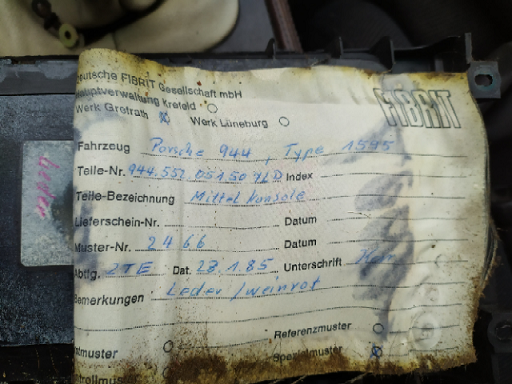 Deutsche FIBRIT Gesellschaft mbH
Hauptverwaltung Krefeld
Werk Grefrath
Werk Lüneburg
FIBRIT
Fahrzeug Porsche 944, Type 1595
Teile-Nr. Index
Teile-Bezeichnung Mittel Konsole
Lieferschein-Nr. Datum
Muster-Nr. 2466 Datum
Abtlg. 2TE Dat. 23.1.85 Unterschrift
Bemerkungen Leder/weinrot
Referenzmuster
Spezialmuster